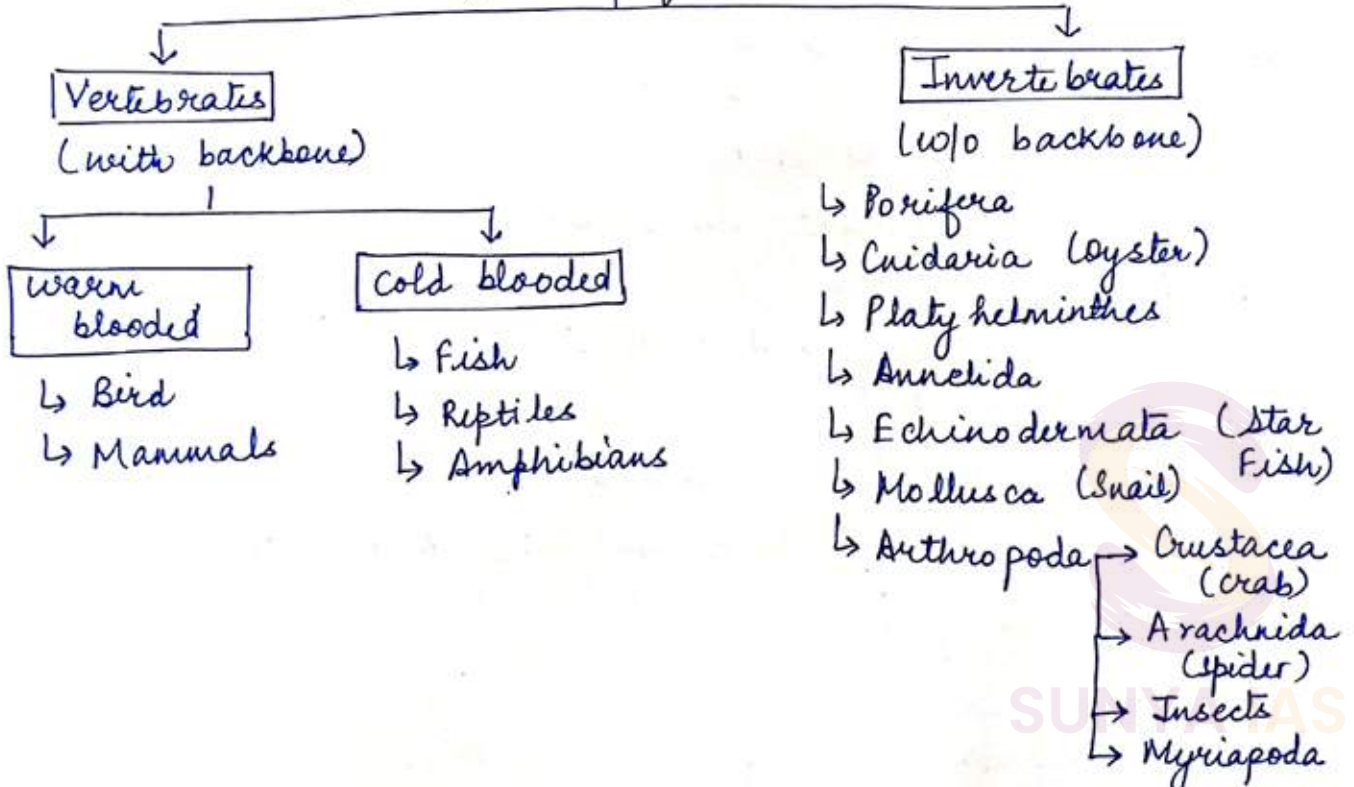 Vertebrates
(with backbone)
warm
blooded
↳ Bird
↳ Mammals
Cold blooded
↳ Fish
↳ Reptiles
↳ Amphibians
Invertebrates
(w/o backbone)
↳ Porifera
↳ Cnidaria (oyster)
↳ Platyhelminthes
↳ Annelida
↳ Echinodermata (Star
Fish)
↳ Mollusca (Snail)
↳ Arthropoda → Crustacea
(crab)
→ Arachnida
(spider)
→ Insects
→ Myriapoda
SUNYA IAS